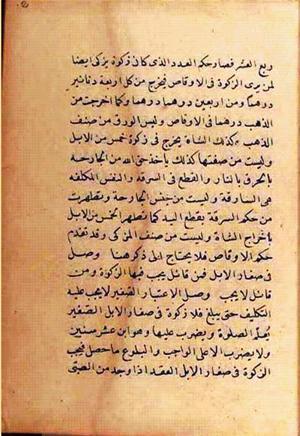 ربع العشر فصار حكم العدد الذي كان ذكوة يزكى ايضا
لمن يرى الزكوة في الاوقاص فيخرج من كل اربعة دنانير
درهما ومن اربعين درهما درهما وكما اخرجت من
الذهب درهما في الاوقاص وليس الورق من صنف
الذهب كذلك الشاة يخرج في زكوة خمس من الابل
وليست من صنفها كذلك يأخذ حق الله من الجارحة
بالحرق بالنار والقطع في السرقة والنفس المكلفة
هي السارقة وليست من جنس الجارحة وتطهرت
من حكم السرقة بقطع اليد كما تطهر الخمس من الابل
باخراج الشاة وليست من صنف المزكى وقد تقدم
حكم الاوقاص فلا يحتاج الى ذكرهما وصل
في صغار الابل فمن قائل يجب فيها الزكوة ومن
قائل لا يجب وصل الاعتبار الصغير لا يجب عليه
التكليف حتى يبلغ فلا زكوة في صغار الابل الصغير
يعلم الصلوة ويضرب عليها وهو ابن عشر سنين
ولا يضرب الا على الواجب والبلوغ ما حصل فيجب
الزكوة في صغار الابل العقد اذا وجد من الصبى